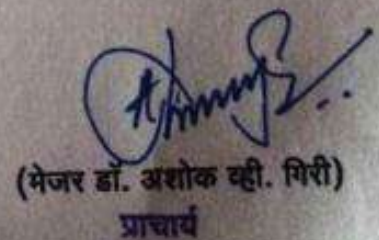 (मेजर डॉ. अशोक व्ही. गिरी)
प्राचार्य